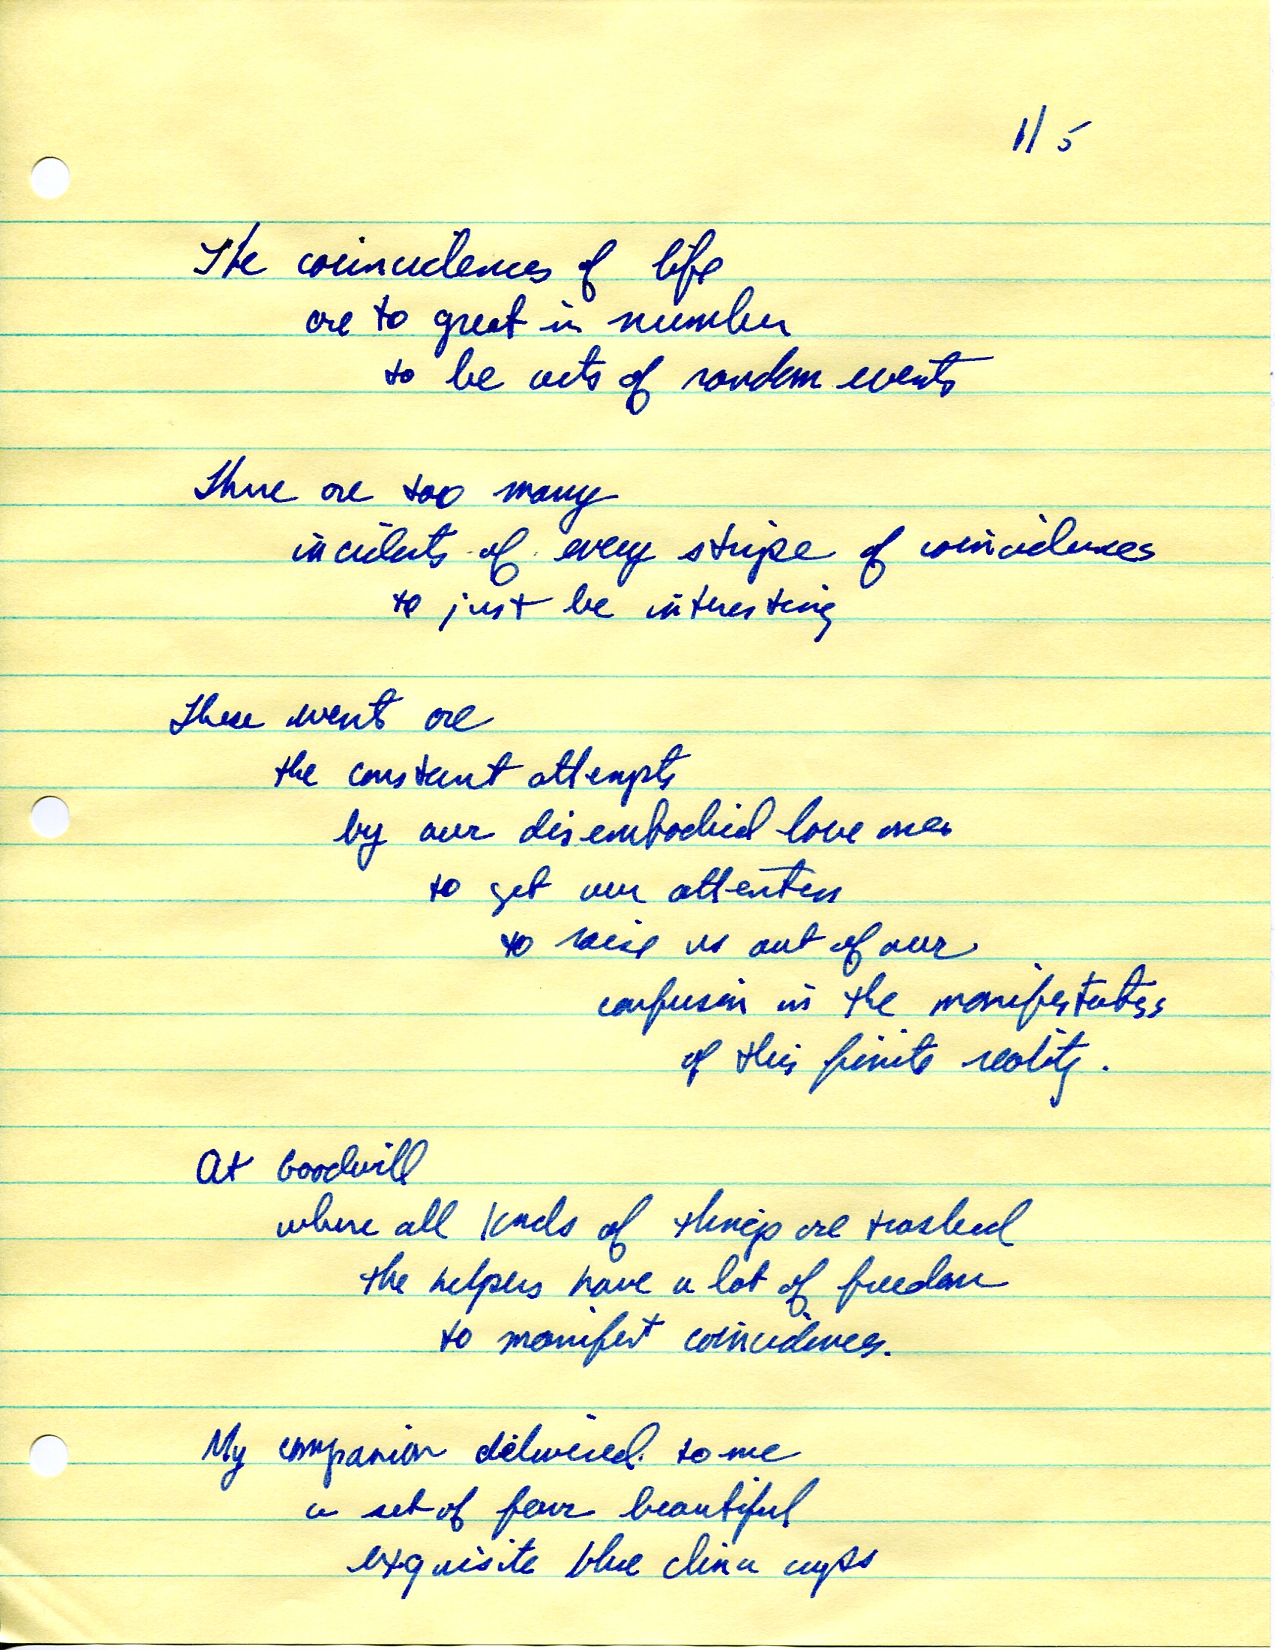 1/5
The coincidences of life
are to great in number
to be acts of random events
There are too many
incidents of every stripe of coincidences
to just be interesting
These events are
the constant attempts
by our disembodied love ones
to get our attention
to raise us out of our
confusion in the manifestations
of this finite reality.
At Goodwill
where all kinds of things are trashed
the helpers have a lot of freedom
to manifest coincidences.
My companion delivered to me
a set of four beautiful
exquisite blue china cups